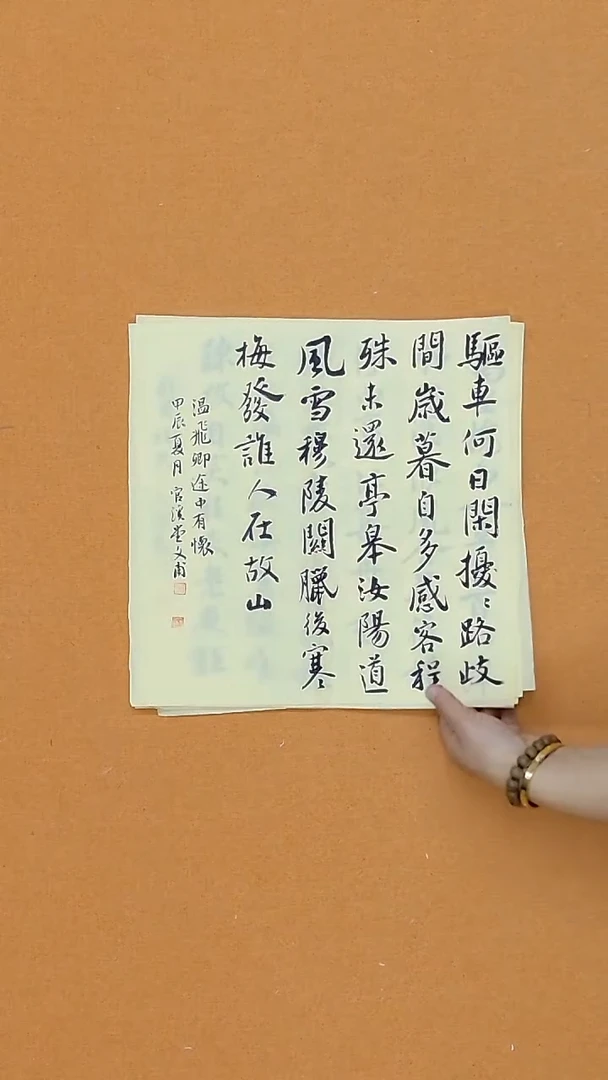 驅車何日閑擾〻路歧
間歲暮自多感客程
殊未還亭皋汝陽道
風雪穆陵關臘後寒
梅發誰人在故山
温飛卿途中有懷
甲辰夏月官溪堂文甫